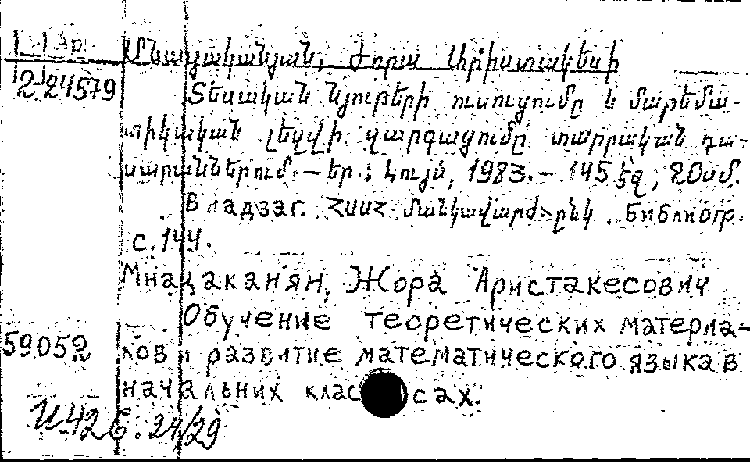 1 Հր.
Մնացականյան, Ժորա Արիստակեսի
2.24579
Տեսական նյութերի ուսուցումը և մաթեմա-
տիկական լեզվի զարգացումը տարրական դա-
սարաններում.— Եր.: Լույս, 1983.— 145 էջ; 20սմ.
В надзаг. ՀՍՍՀ մանկավարժ. Библиогр.
с.144.
Мнацаканян, Жора Аристакесович
Обучение теоретических материа-
59052
лов и развитие математического языка в
начальных классах.